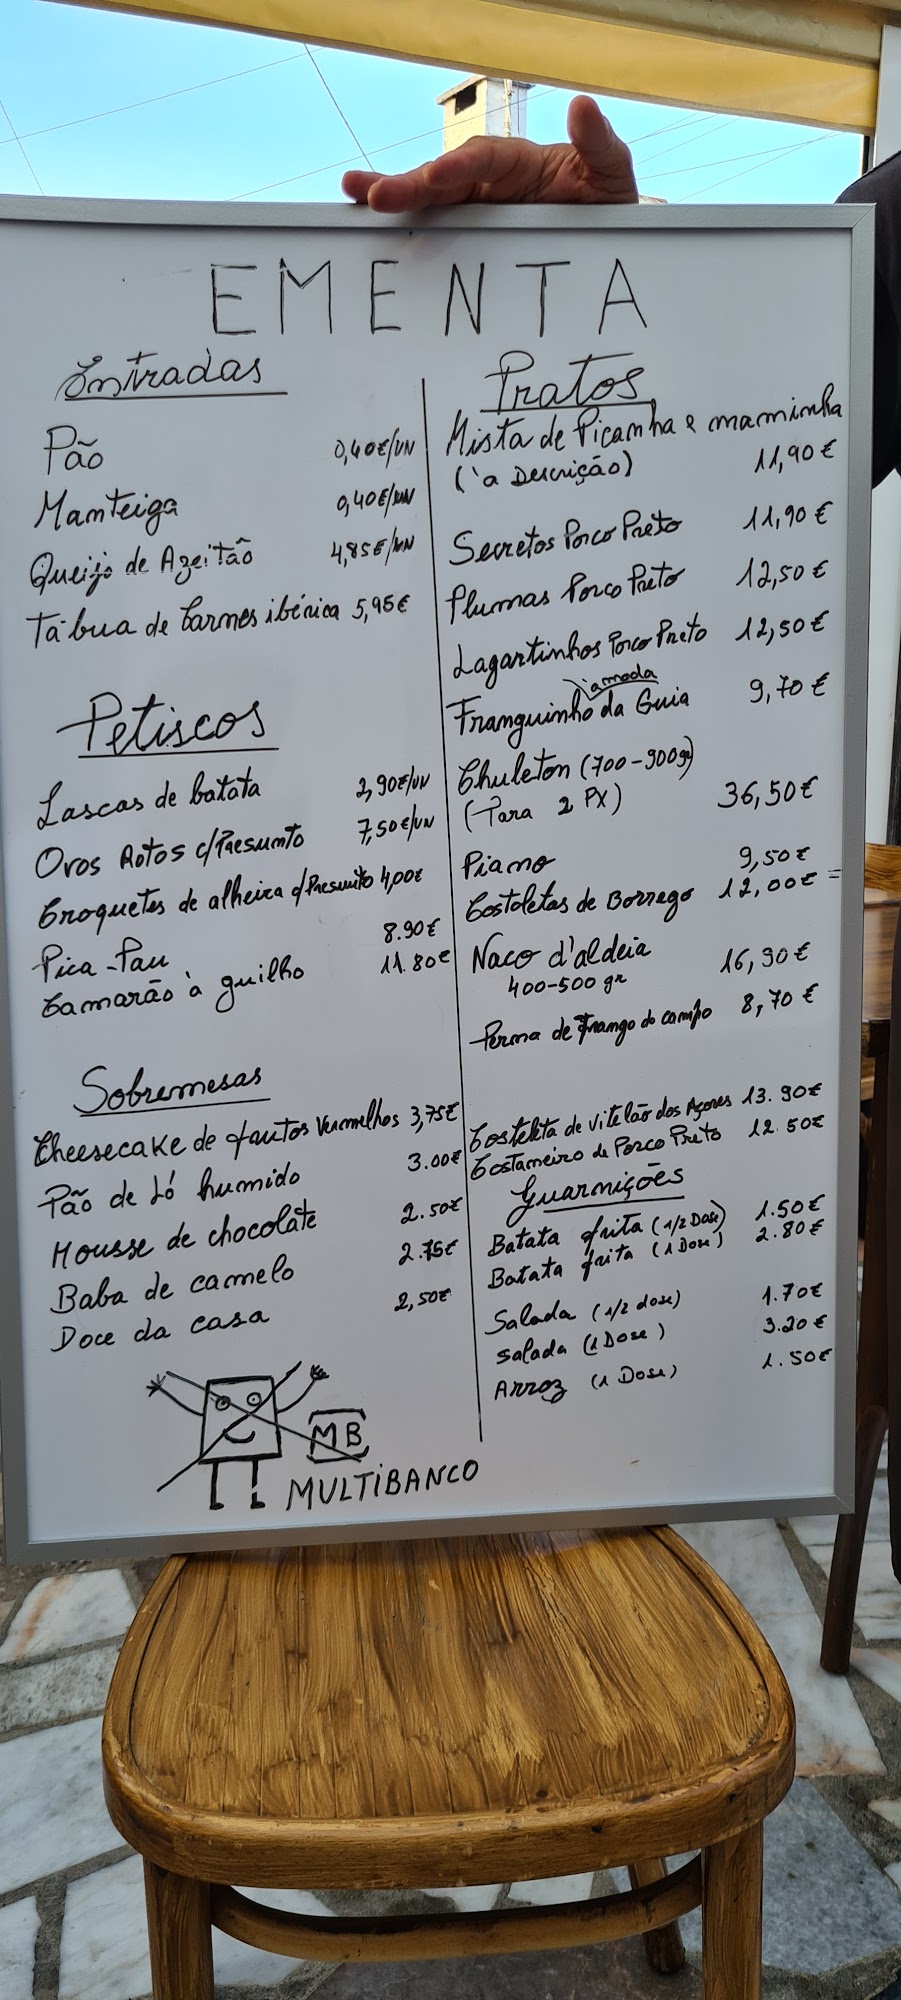 EMENTA
Entradas
Pão 0,40€/UN
Manteiga 0,40€/UN
Queijo de Azeitão 4,85€/UN
Tábua de Carnes ibérica 5,95€
Petiscos
Lascas de batata 2,90€/UN
Ovos Rotos c/Presunto 7,50€/UN
Croquetes de alheira c/Presunto 4,00€
Pica-Pau 8.90€
Camarão à guilho 11.80€
Sobremesas
Cheesecake de frutos Vermelhos 3,75€
Pão de Ló humido 3.00€
Mousse de chocolate 2.50€
Baba de camelo 2.75€
Doce da casa 2,50€
MB
MULTIBANCO
Pratos
Mista de Picanha e maminha
(à Descrição) 11,90€
Secretos Porco Preto 11,90€
Plumas Porco Preto 12,50€
Lagartinhos Porco Preto 12,50€
amada
Franguinho da Guia 9,70€
Chuleton (700-900gr)
(Para 2 PX) 36,50€
Piano 9,50€
Costoletas de Borrego 12,00€
Naco d'aldeia 16,90€
400-500 gr
Perna de Frango do campo 8,70€
Costeleta de vitelão dos Açores 13.90€
Costaneiro de Porco Preto 12.50€
Guarnições
Batata frita (1/2 Dose) 1.50€
Batata frita (1 Dose) 2.80€
Salada (1/2 dose) 1.70€
Salada (1 Dose) 3.20€
Arroz (1 Dose) 1.50€